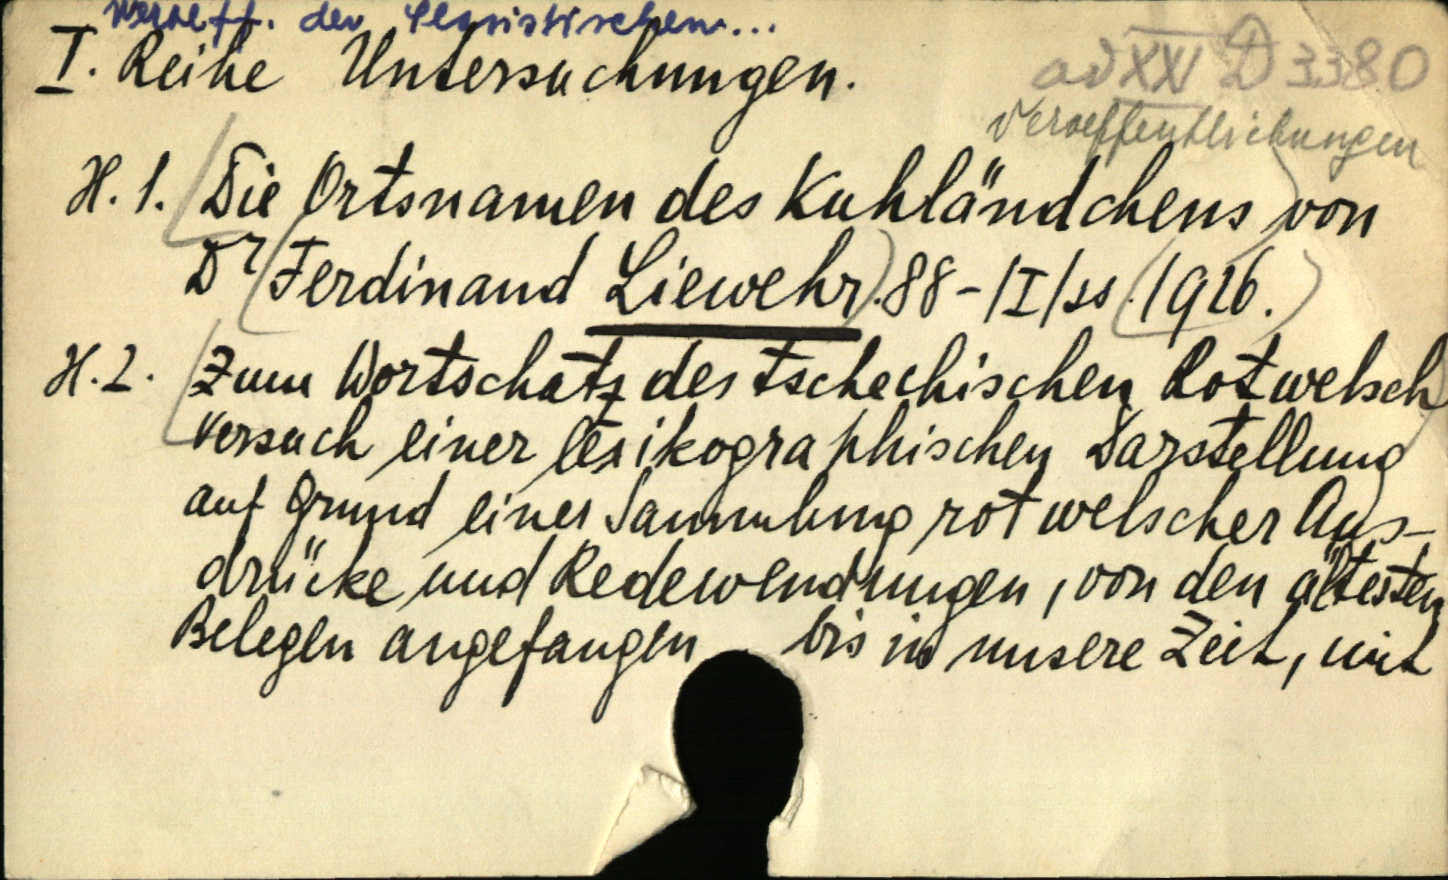 Veroeff. der Slavistischen...
I. Reihe Untersuchungen.
ad XXV D 3380
Veroeffentlichungen
H. 1. Die Ortsnamen des Kuhländchens von
Dr Ferdinand Liewehr. 88-/I/ss. (1926.)
H. 2. Zum Wortschatz des tschechischen Rotwelsch
Versuch einer lexikographischen Darstellung
auf Grund einer Sammlung rotwelscher Aus-
drücke und Redewendungen, von den ältesten
Belegen angefangen bis in unsere Zeit, mit